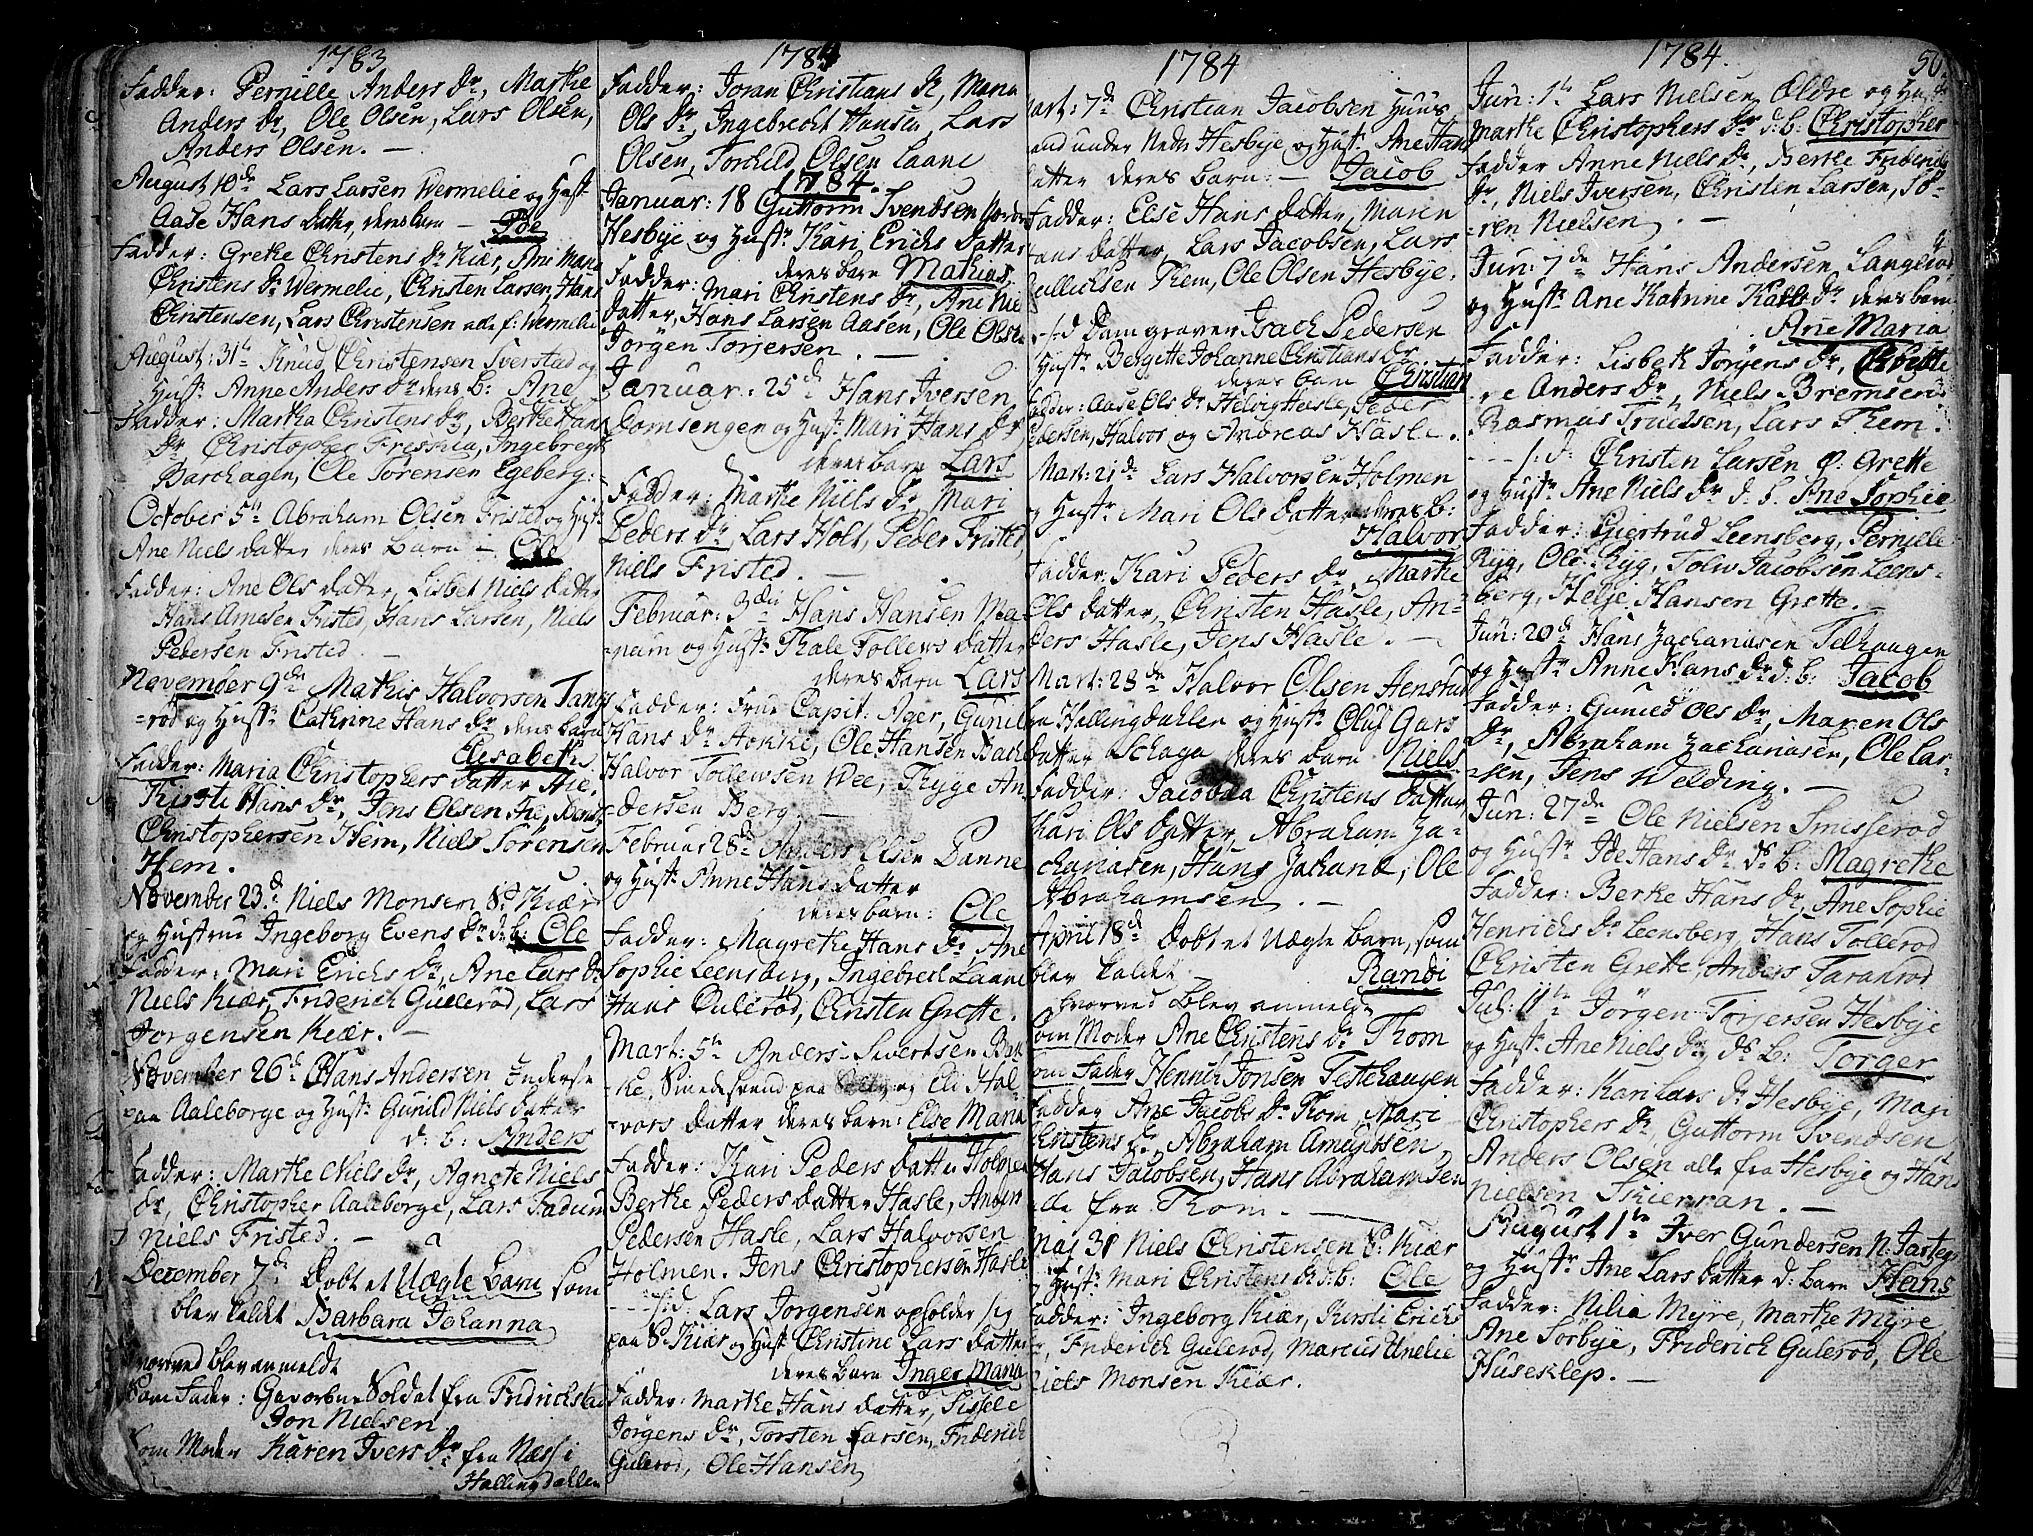 1783
Fadder: Pernille Anders Dr, Marthe
Anders Dr, Ole Olsen, Lars Olsen,
Anders Olsen. —
August 10de Lars Larsen Wermelie og Hustr
Aase Hans Datter, deres barn —
Fadder: Grethe Christens Dr Kiær, Ane Maria
Christens Dr Wermelie, Christen Larsen, Hans
Christensen, Lars Christensen alle f: Wermelie
August: 31te Knud Christensen Sverstad og
Hustr Anne Anders Dr deres b: Ane
Fadder: Martha Christens Dr, Berthe Hans
Dr, Christopher Freshia, Ingebregt
Barchagen, Ole Sørensen Egeberg.
October 5te Abraham Olsen Fristed og Hustr
Ane Niels datter deres Barn — Ole
Fadder: Ane Ols datter, Lisbet Niels datter
Hans Amesen Fristed, Hans Larsen, Niels
Pedersen Fristed. —
November 9de Mathis Halvorsen Tangs
=rød og Hustr Cathrine Hans Dr deres barn
Elisabeth
Fadder: Maria Christophers datter Hie.
Kirste Hans Dr, Jens Olsen Hie,
Christophersen Hem, Niels Sørensen
Hem.
November 23d Niels Monsen S: Kiær
og Hustrue Ingeborg Evens Dr d: b: Ole
Fadder: Mari Erichs Dr, Ane Lars Dr
Niels Kiær, Friderich Gulerød, Lars
Jørgensen Kiær. —
November 26d Hans Andersen Inderste
paa Aaleborge og Hustr Gunild Niels datter
d: b: Anders
Fadder: Marthe Niels Dr, Agnete Niels
dr, Christopher Aaleborge, Lars Fadum
Niels Fristed. —
December 7de Døbt et Uægte Barn som
blev kaldet Barbara Johanna
hvorved blev anmeldt
Som Fader: Gevorben Soldat fra Fridrichstad
Jon Nielsen
Som Moder Karen Ivers Dr fra Næss i
Hallingdahlen
1784
Fadder: Joran Christians Dr, Maria
Ols Dr, Ingebrecht Hansen, Lars
Olsen, Torkild Olsen Laane
1784.
Januar: 18 Guttorm Svendsen Nordre
Hesbye og Hustr Kari Erichs Datter
deres barn Mathias
Fadder: Mari Christens Dr, Ane Nie
Datter, Hans Larsen Aasen, Ole Olsen
Jørgen Torjersen. —
Januar: 25de Hans Iversen
Domsengen og Hustr Mari Hans Dr
deres barn Lars
Fadder: Marthe Niels Dr, Mari
Peders Dr, Lars Holt, Peder Fristed
Niels Fristed. —
Februar: Hans Hansen Mea
=num og Hustr Thale Tollevs datter
deres barn Lars
Fadder: Frue Capit: Ager, Gunil
Hans Dr Hokke, Ole Hansen Bache
Halvor Tollewsen Wee, Thyge An
=dersen Berg. —
Februar 28de Anders Olsen Danne
og Hustr Anne Hans datter
deres barn: Ole
Fadder: Magrethe Hans Dr, Ane
Sophie Leensberg, Ingebret Laane
Hans Oulerød, Christen Grette.
Mart: 5te Anders Sivertsen
=ke, og Eli Hal
=vors datter deres barn: Else Maria
Fadder: Kari Peders datter Holmen
Berthe Peders datter Hasle, Anders
Pedersen Hasle, Lars Halvorsen
Holmen. Jens Christophersen Hasle
---- s: d: Lars Jørgensen opholder sig
paa S: Kiær og Hustr Christine Lars datter
deres barn Inger Maria
Fadder: Marthe Hans datter, Sissele
Jørgens Dr, Torsten Larsen, Friderich
Gulerød, Ole Hansen
1784
Mart: 7de Christian Jacobsen Huus
mand under Nedr Hesbye og Hustr Ane Hans
datter deres barn: — Jacob
Fadder: Else Hans datter, Maren
Hans datter, Lars Jacobsen, Lars
Kullichsen Them, Ole Olsen Hesbye.
-- s: d Damgraver Isach Pedersen
Hustr Bergitte Johanne Christians Dr
deres barn Christian
Fadder: Aase Ols Dr Helvig Hasle, Peder
Pedersen, Halvor og Andreas Hasle.
Mart: 21de Lars Halvorsen Holmen
og Hustr Mari Ols datter deres b:
Halvor
Fadder: Kari Peders Dr, Marthe
Ols datter, Christen Hasle, An=
ders Hasle, Jens Hasle. —
Mart: 28de Halvor Olsen
fra Hallingdahlen og Hustr Oluf Gars
datter Schaga deres barn Niels
Fadder: Jacobaa Christens datter,
Kari Ols datter, Abraham Za=
chariasen, Hans Zachariæ, Ole
Abrahamsen. —
April 18de Døbt et Uægte barn, som
blev kaldet — Randi
hvorved blev anmeldt
Som Moder Ane Christens Dr Thom
Som Fader Henrich Jonsen Testehaugen
Fadder Ane Jacobs Dr Thom, Mari
Christens Dr, Abraham Amundsen,
Hans Jacobsen, Hans Abrahamsen
alle fra Thom. —
Maj 31 Niels Christensen S: Kiær
og Hustr Mari Christens Dr d: b: Ole
Fadder: Ingeborg Kiær, Kirsti Erichs
Dr, Friderich Gulerød, Marcus Unelie
Niels Monsen Kiær.
1784. 50.
Jun: 1te Lars Nielsen Ældre og Hustr
Marthe Christophers Dr d: b: Christopher
Fadder Anne Niels Dr, Berthe Friderichs
Dr, Niels Iversen, Christen Larsen, Sø-
=ren Nielsen. —
Jun: 7de Hans Andersen Langerød
og Hustr Ane Katrine Karls Dr deres barn
Ane Maria
Fadder: Lisbeth Jørgens Dr,
Anders Dr, Niels Bremsen
Rasmus Truelsen, Lars Them.
---- s: d: Christen Larsen Ø: Grette
og Hustr Ane Niels Dr d. b. Ane Sophie
Fadder: Giertrud Leensberg, Pernille
Ryg, Ole Ryg, Tolw Jacobsen Leens-
berg, Helje Hansen Grette. —
Jun: 20de Hans Zachariasen Telhaugen
og Hustr Anne Hans Dr d. b: Jacob
Fadder: Gunild Ols Dr, Maren Ols
Dr, Abraham Zachariasen, Ole Lar-
=sen, Jens Welding. —
Jun: 27de Ole Nielsen Smisserød
og Hustr Ide Hans Dr ds b: Magrethe
Fadder: Berthe Hans Dr, Ane Sophie
Henrichs Dr Leensberg, Hans Tollerød
Christen Grette, Anders Taranrød
Jul: 11te Jørgen Torjersen Hesbye
og Hustr Ane Niels Dr ds b: Torger
Fadder: Kari Lars Dr Hesbye, Mari
Christophers Dr, Guttorm Svendsen
Anders Olsen alle fra Hesbye og Hans
Nielsen Skierran. —
August 1te Iver Gundersen N: Jarteg
og Hustr Ane Lars datter d: barn Hans
Fadder: Nilia Myre, Marthe Myre,
Ane Sørbye, Friderich Gulerød, Ole
Huseklep. —